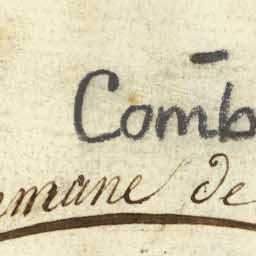 Comb
emane de